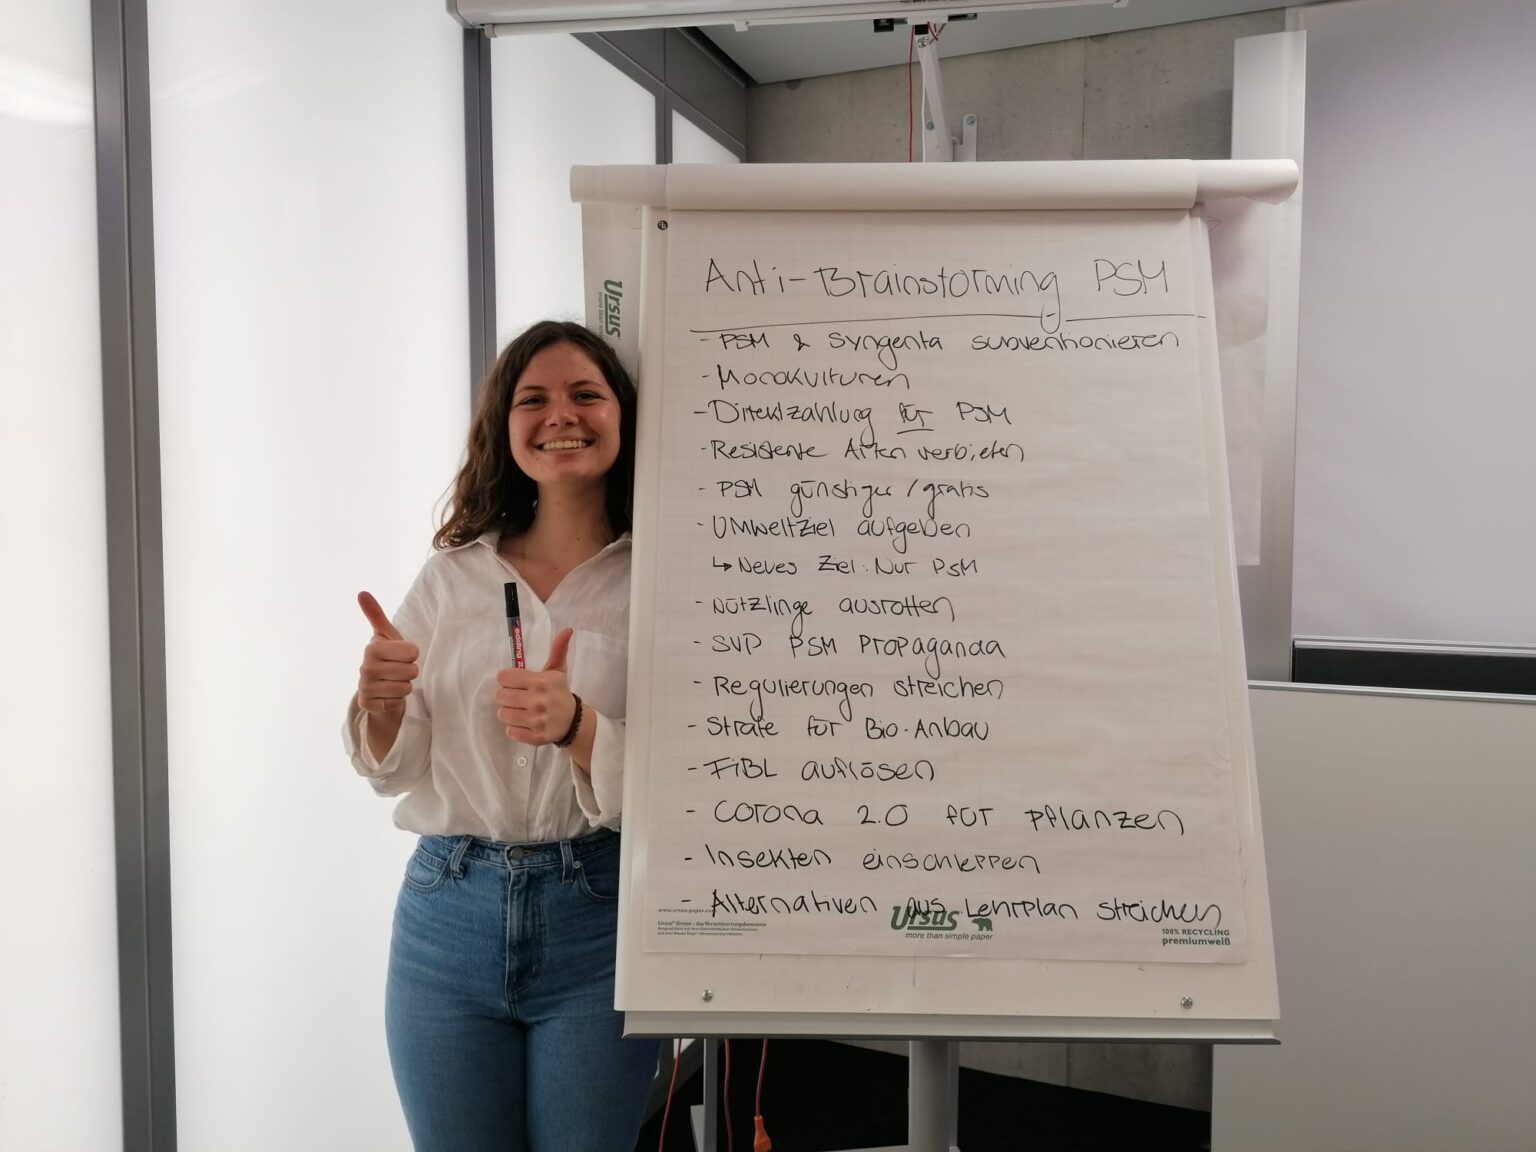 Anti-Brainstorming PSM
- PSM & Syngenta subventionieren
- Monokulturen
- Direktzahlung für PSM
- Resistente Arten verbieten
- PSM günstiger / gratis
- Umweltziel aufgeben
↳ Neues Ziel: Nur PSM
- Nützlinge ausrotten
- SVP PSM Propaganda
- Regulierungen streichen
- Strafe für Bio-Anbau
- FiBL auflösen
- Corona 2.0 für Pflanzen
- Insekten einschleppen
- Alternativen aus Lehrplan streichen
Ursus
more than simple paper
100% RECYCLING
premiumweiß
Ursus
more than
edding 2